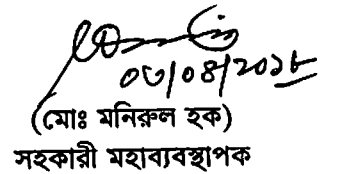 ০৩/০৪/২০১৮
(মোঃ মনিরুল হক)
সহকারী মহাব্যবস্থাপক